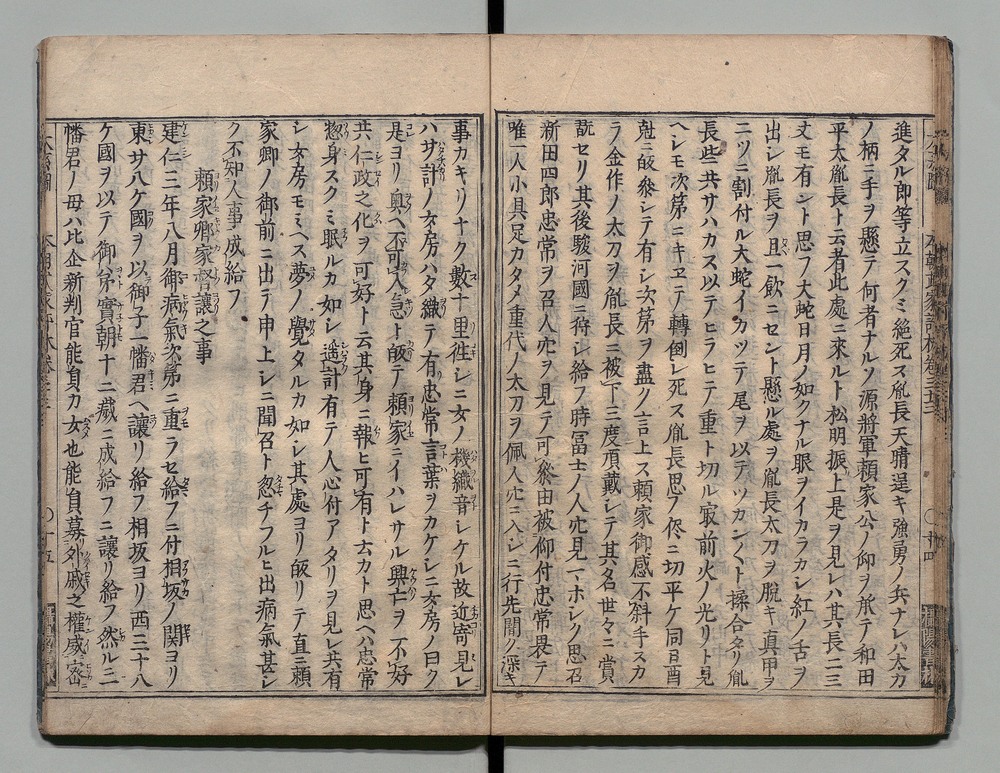 進タル郎等立スクミ絶死ス胤長天晴逞キ強勇ノ兵ナレハ太刀
ノ柄ニ手ヲ懸テ何者ナルソ源將軍頼家公ノ仰ヲ承テ和田
平太胤長ト云者此處ニ來ルト松明振上是ヲ見レハ其長二三
丈モ有ント思フ大蛇日月ノ如クナル眼ヲイカラカシ紅ノ舌ヲ
出シ胤長ヲ且一飲ニセント懸ル處ヲ胤長太刀ヲ脱キ真甲ヲ
二ツニ割付ル大蛇イカツテ尾ヲ以テツカンヘト揉合タリ胤
長些共サハカス以テヒラヒテ重ト切ル寂前火ノ光リト見
ヘレモ次第ニキヱテ轉倒レ死ス胤長思ノ侭ニ切平ケ同日酉
尅ニ皈參シテ有シ次第ヲ盡ク言上ス頼家御感不斜手スカ
ラ金作ノ太刀ヲ胤長ニ被下三度頂戴シテ其名世々ニ賞
翫セリ其後駿河國ニ狩シ給フ時冨士ノ人穴見マホシク思召
新田四郎忠常ヲ召人穴ヲ見テ可參由被仰付忠常畏テ
唯一人小具足カタメ重代ノ太刀ヲ佩人穴ニ入シニ行先闇ク深キ
事カキリナク數十里往シニ女ノ機織音シケル故近寄見レ
ハサ計ノ女房ハタ織テ有忠常言葉ヲカケシニ女房ノ曰ク
是ヨリ奥ヘ不可入急ト皈テ頼家ニイハレサル興亡ヲ不好
共仁政之化ヲ可好ト云其身ニ報ヒ可有ト云カト思ヘハ忠常
惣身スクミ眠ルカ如シ遥計有テ人心付アタリヲ見レ共有
シ女房モミヘス夢ノ覺タルカ如シ其處ヨリ皈リテ直ニ頼
家卿ノ御前ニ出テ申上シニ聞召ト忽チフルヒ出病氣甚シ
ク不知人事成給フ
頼家卿家督譲之事
建仁三年八月御病氣次第ニ重ラセ給フニ付相坂ノ関ヨリ
東サ八ケ國ヲ以御子一幡君ヘ讓リ給フ相坂ヨリ西三十八
ケ國ヲ以テ御弟實朝十二歳ニ成給フニ讓リ給フ然ルニ一
幡君ノ母ハ比企新判官能負カ女也能負募外戚之權威密
十四
十五